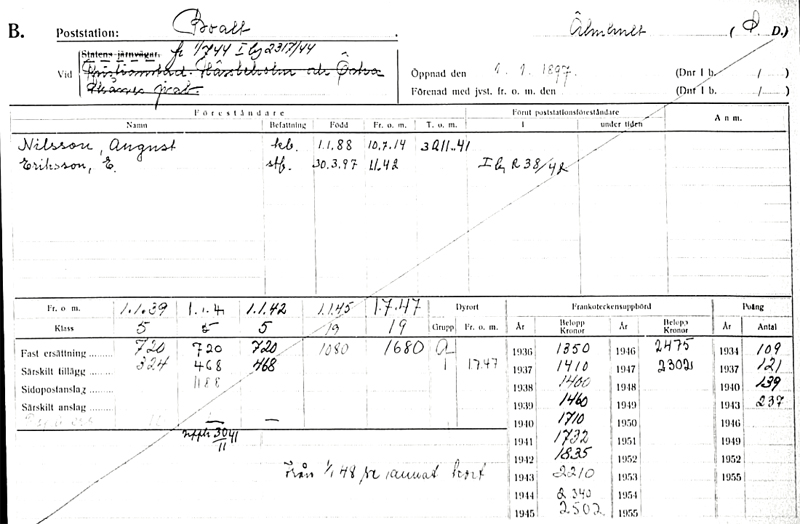 B. Poststation: Boalt Älmhult ( D.)
Statens järnvägar. fr 1/7 44 I bg 2317/44
Vid Kristianstad-Hässleholm och Östra
Skånes jvst.
Öppnad den 1.1.1897. (Dnr I b. / )
Förenad med jvst. fr. o. m. den (Dnr I b. / )
Föreståndare Förut poststationsföreståndare Anm.
Namn Befattning Född Fr. o. m. T. o. m. i under tiden
Nilsson, August kb. 1.1.88 10.7.14 30.11.41
Eriksson, E. stf. 30.3.97 1.1.42 I bg R 38/42
Fr. o m. 1.1.39 1.1.4 1.1.42 1.1.45 1.7.47 Dyrort Frankoteckensuppbörd Poäng
Klass 5 5 5 19 19 Grupp Fr. o. m. År Belopp Kronor År Belopp Kronor År Antal
Fast ersättning 720 720 720 1080 1680 a 1936 1350 1946 2475 1934 109
Särskilt tillägg 324 468 468 1 1.7.47 1937 1410 1947 2302 1937 121
Sidopostanslag 1188 1938 1400 1948 1940 139
Särskilt anslag 1939 1460 1949 1943 237
1940 1710 1950 1946
upph 30/11 41 1941 1732 1951 1949
1942 1835 1952 1952
Från 1/1 48 se annat kort 1943 2210 1953 1955
1944 2340 1954
1945 2502 1955